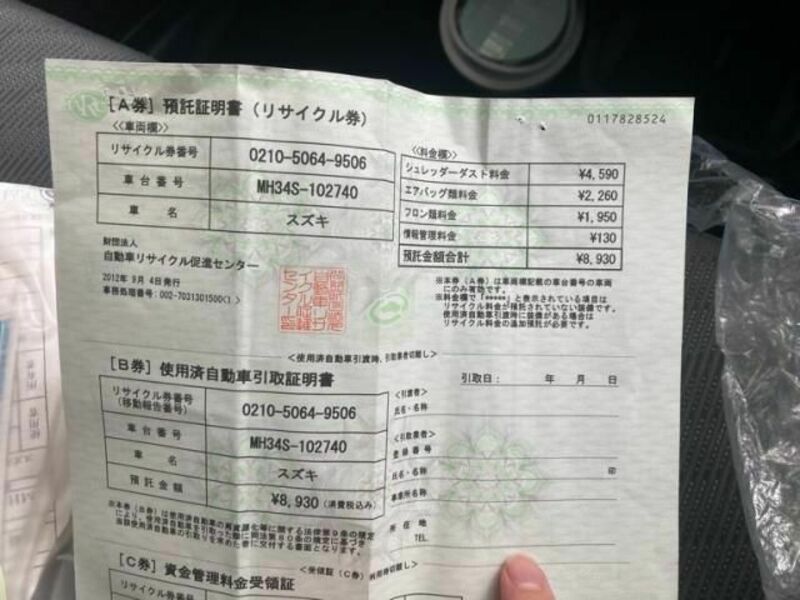 [A券] 預託証明書 (リサイクル券)
0117828524
≪車両欄≫
リサイクル券番号 0210-5064-9506
車台番号 MH34S-102740
車名 スズキ
≪料金欄≫
シュレッダーダスト料金 ¥4,590
エアバッグ類料金 ¥2,260
フロン類料金 ¥1,950
情報管理料金 ¥130
預託金額合計 ¥8,930
財団法人
自動車リサイクル促進センター
2012年 9月 4日発行
事務処理番号:002-7031301500(1)
※本券(A券)は車両欄記載の車台番号の車両
にのみ有効です。
※料金欄で「*****」と表示されている項目は
リサイクル料金が預託されていない装備です。
使用済自動車引渡時に装備がある場合は
リサイクル料金の追加預託が必要です。
<使用済自動車引渡時、引取業者切離し>
[B券] 使用済自動車引取証明書
引取日: 年 月 日
リサイクル券番号
(移動報告番号) 0210-5064-9506
車台番号 MH34S-102740
車名 スズキ
預託金額 ¥8,930 (消費税込み)
<引渡者>
氏名・名称
<引取業者>
登録番号
氏名・名称 印
事業所名称
所在地
TEL.
※本券(B券)は使用済自動車の再資源化等に関する法律第9条の規定
により、使用済自動車を引取った際に同法第80条の規定に基づき
当該使用済自動車の引取りを求めた者に交付する書面となります。
<受領証(C券) 利用時切離し>
[C券] 資金管理料金受領証
リサイクル券番号